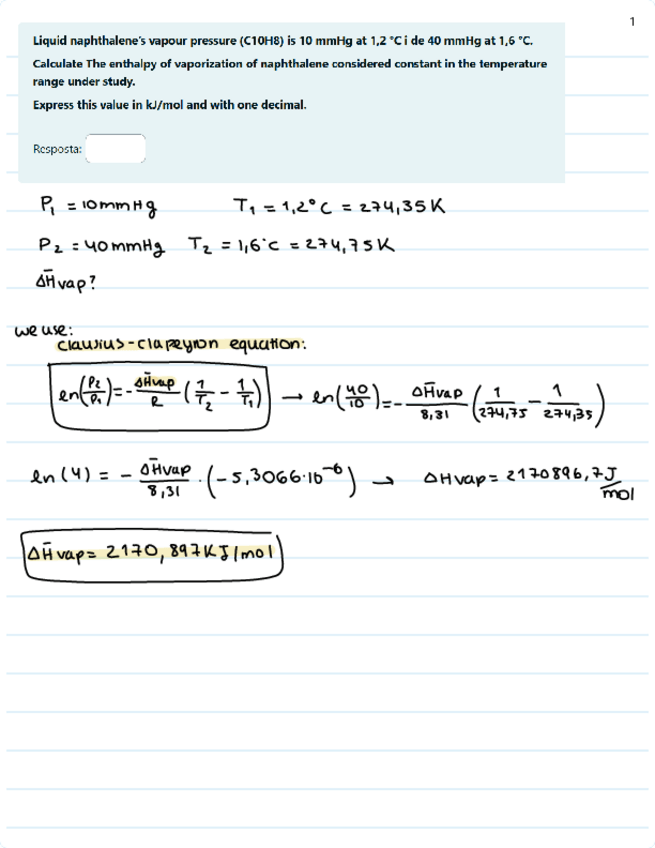 1
Liquid naphthalene's vapour pressure (C10H8) is 10 mmHg at 1,2 °C i de 40 mmHg at 1,6 °C.
Calculate The enthalpy of vaporization of naphthalene considered constant in the temperature
range under study.
Express this value in kJ/mol and with one decimal.
Resposta:
P₁ = 10mmHg T₁ = 1,2°C = 274,35K
P₂ = 40mmHg T₂ = 1,6°C = 274,75K
ΔH̄vap?
we use:
clausius-clapeyron equation:
ln(P₂/P₁) = - ΔH̄vap/R (1/T₂ - 1/T₁) → ln(40/10) = - ΔH̄vap/8,31 (1/274,75 - 1/274,35)
ln(4) = - ΔH̄vap/8,31 · (-5,3066·10⁻⁶) → ΔHvap = 2170896,7 J/mol
ΔH̄vap = 2170,897KJ/mol